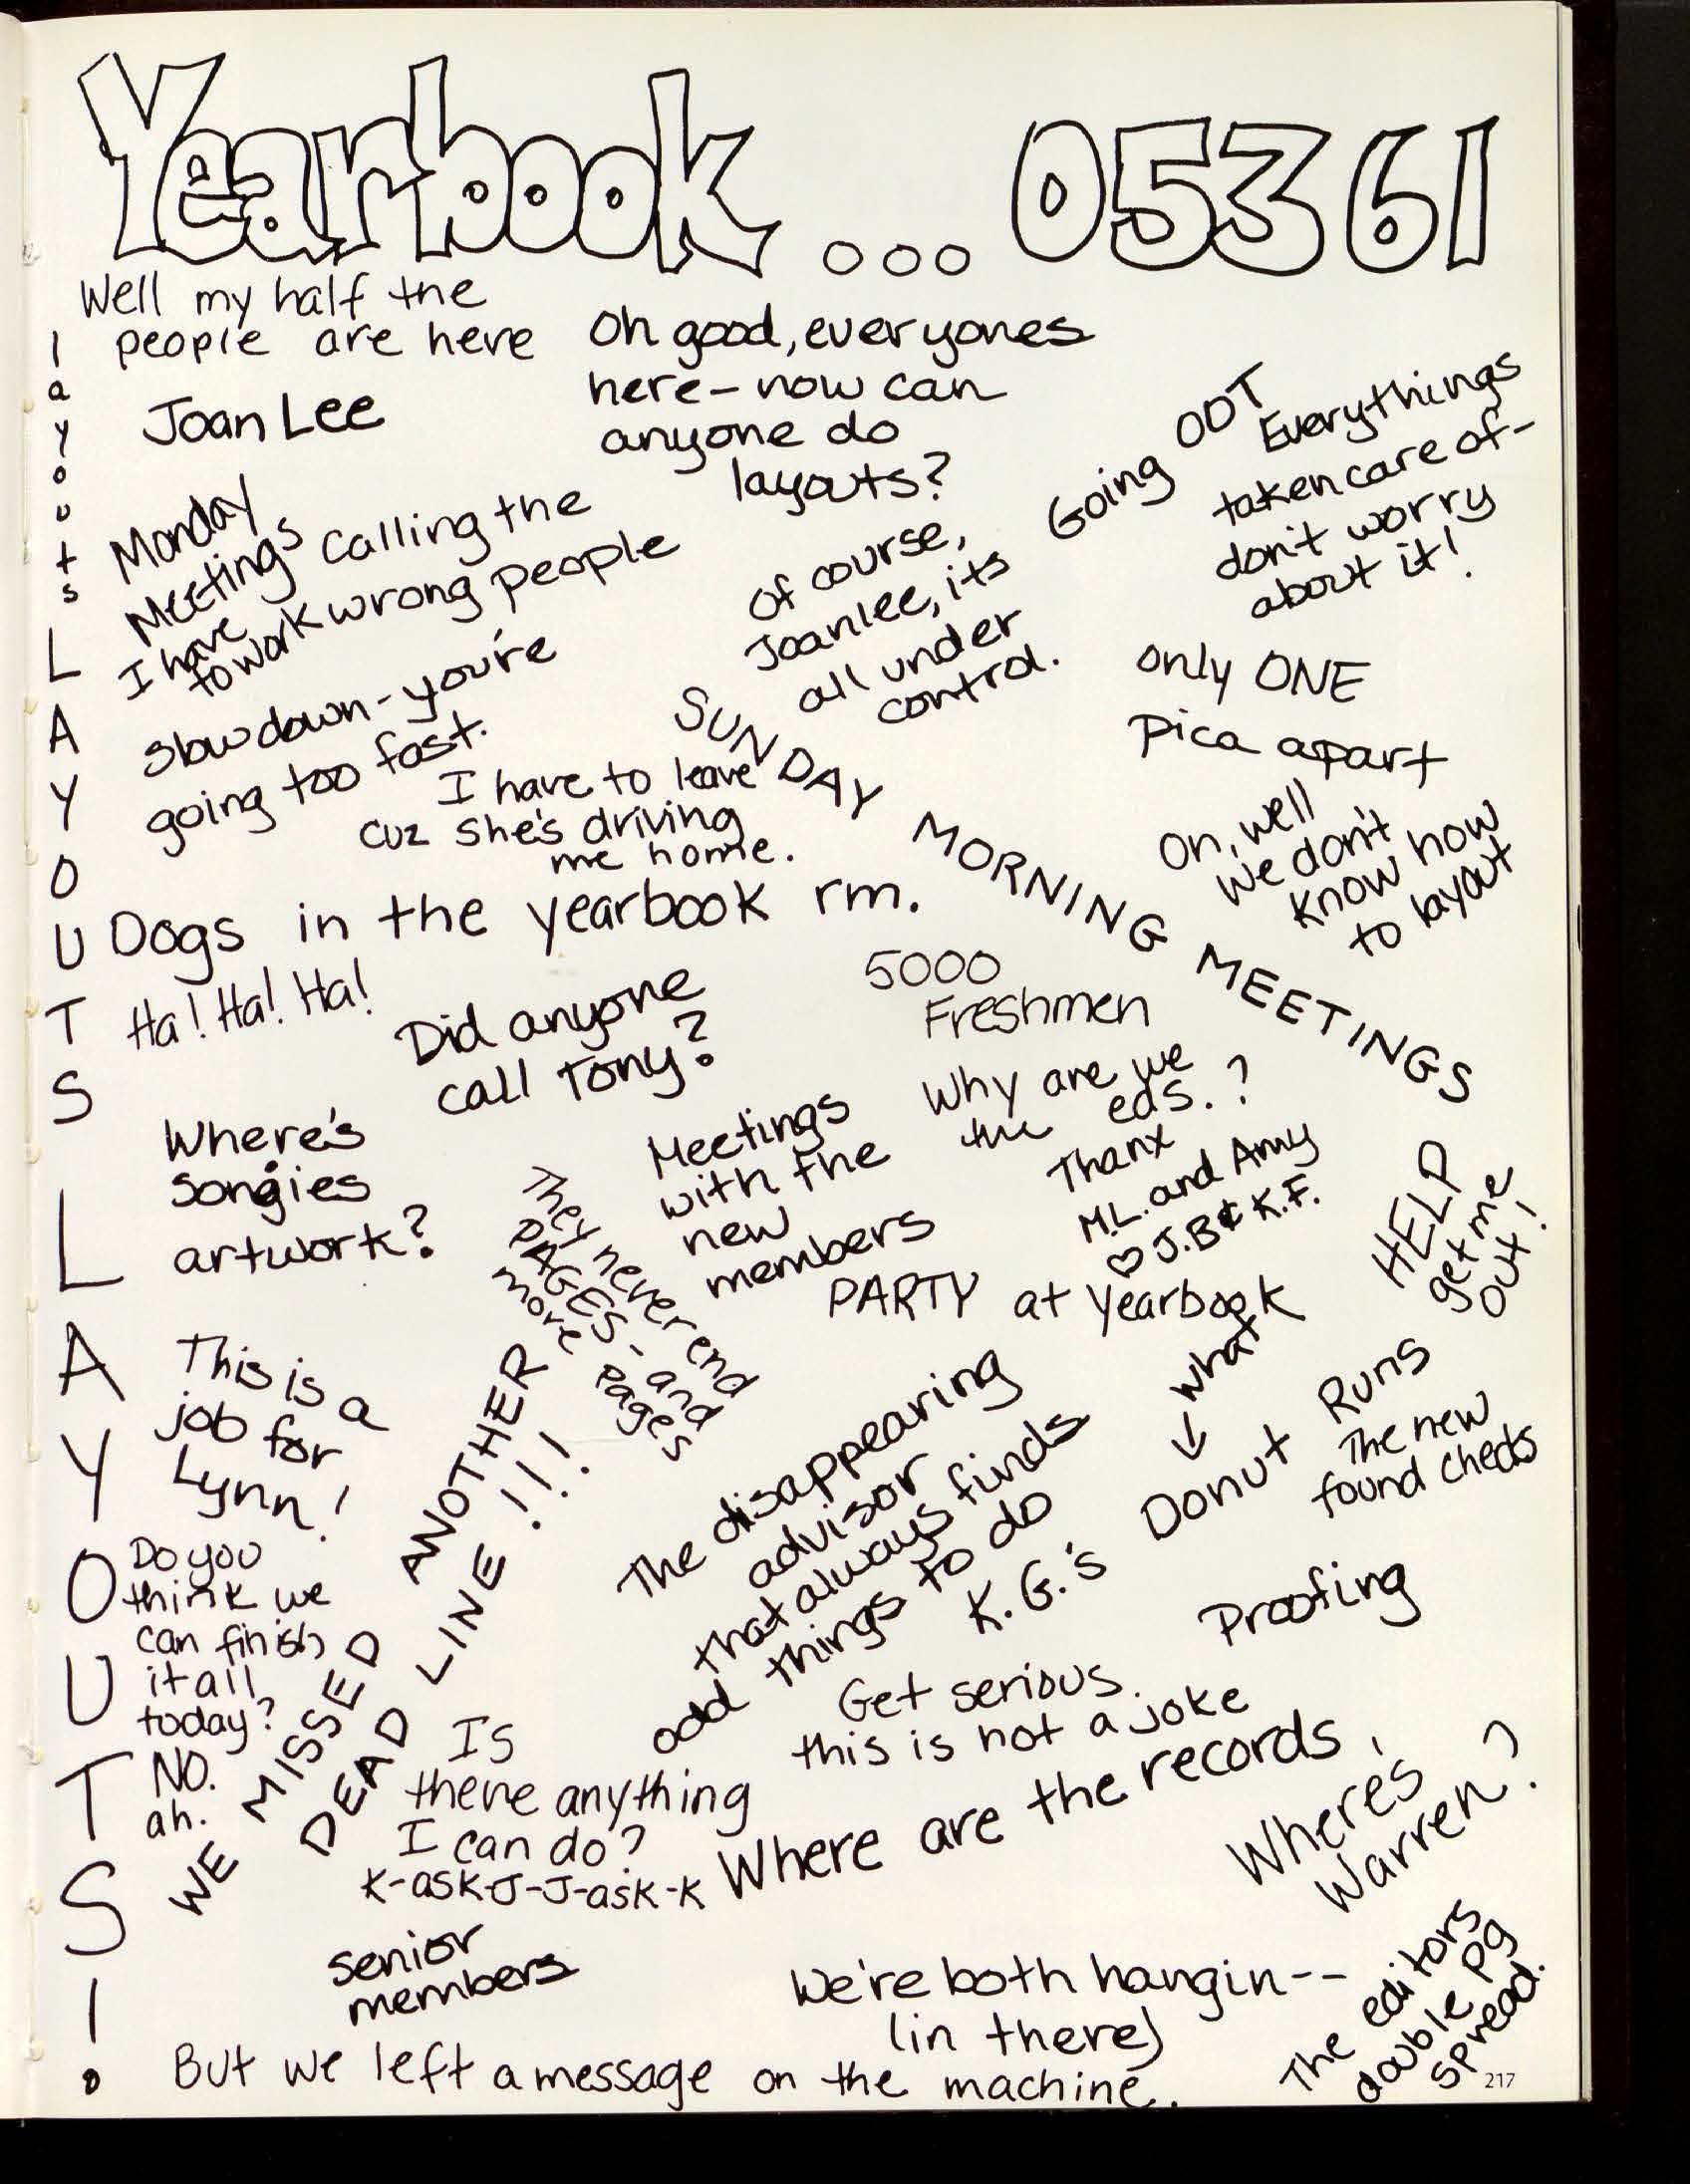 Yearbook ... 05361
layouts LAYOUTS LAYOUTS!
Well my half the
people are here
Oh good, everyones
here - now can
anyone do
layouts?
Joan Lee
Going OOT
Everythings
taken care of-
don't worry
about it!
Monday
Meetings
Calling the
wrong people
I have
to work
Of course,
Joanlee, its
all under
control.
Slow down - you're
going too fast.
only ONE
pica apart
I have to leave
cuz she's driving
me home.
SUNDAY MORNING MEETINGS
Oh, well
we don't
know how
to layout
Dogs in the yearbook rm.
Ha! Ha! Ha!
5000
Freshmen
Did anyone
call Tony?
Why are we
the eds.?
Where's
songies
artwork?
Meetings
with the
new
members
Thanx
M.L. and Amy
♡ J.B & K.F.
HELP
get me
out!
They never end
PAGES - and
more pages
PARTY at Yearbook
This is a
job for
Lynn!
what
↓
K.G.'s Donut Runs
The new
found cheds
The disappearing
advisor
that always finds
odd things to do
WE MISSED ANOTHER
DEAD LINE!!!
Do you
think we
can finish
it all
today?
NO.
ah.
Proofing
Get serious.
this is not a joke
Is
there anything
I can do?
K-ask-J-J-ask-K
Where are the records,
Where's
Warren?
senior
members
We're both hangin--
(in there)
The editors
double pg
spread.
But we left a message on the machine.
217